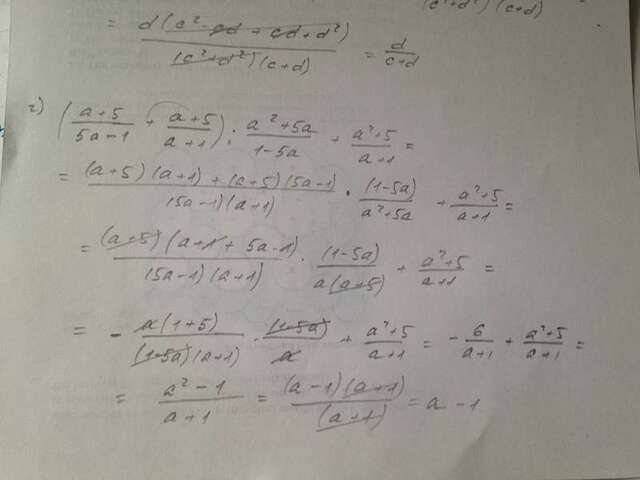 (c²+d²)(c+d)
= d(c²-cd+cd+d²)/(c²+d²)(c+d) = d/(c+d)
г) ((a+5)/(5a-1) + (a+5)/(a+1)) : (a²+5a)/(1-5a) + (a²+5)/(a+1) =
= ((a+5)(a+1)+(a+5)(5a-1))/((5a-1)(a+1)) · (1-5a)/(a²+5a) + (a²+5)/(a+1) =
= ((a+5)(a+1+5a-1))/((5a-1)(a+1)) · (1-5a)/(a(a+5)) + (a²+5)/(a+1) =
= - (a(1+5))/((1-5a)(a+1)) · (1-5a)/a + (a²+5)/(a+1) = - 6/(a+1) + (a²+5)/(a+1) =
= (a²-1)/(a+1) = ((a-1)(a+1))/(a+1) = a-1